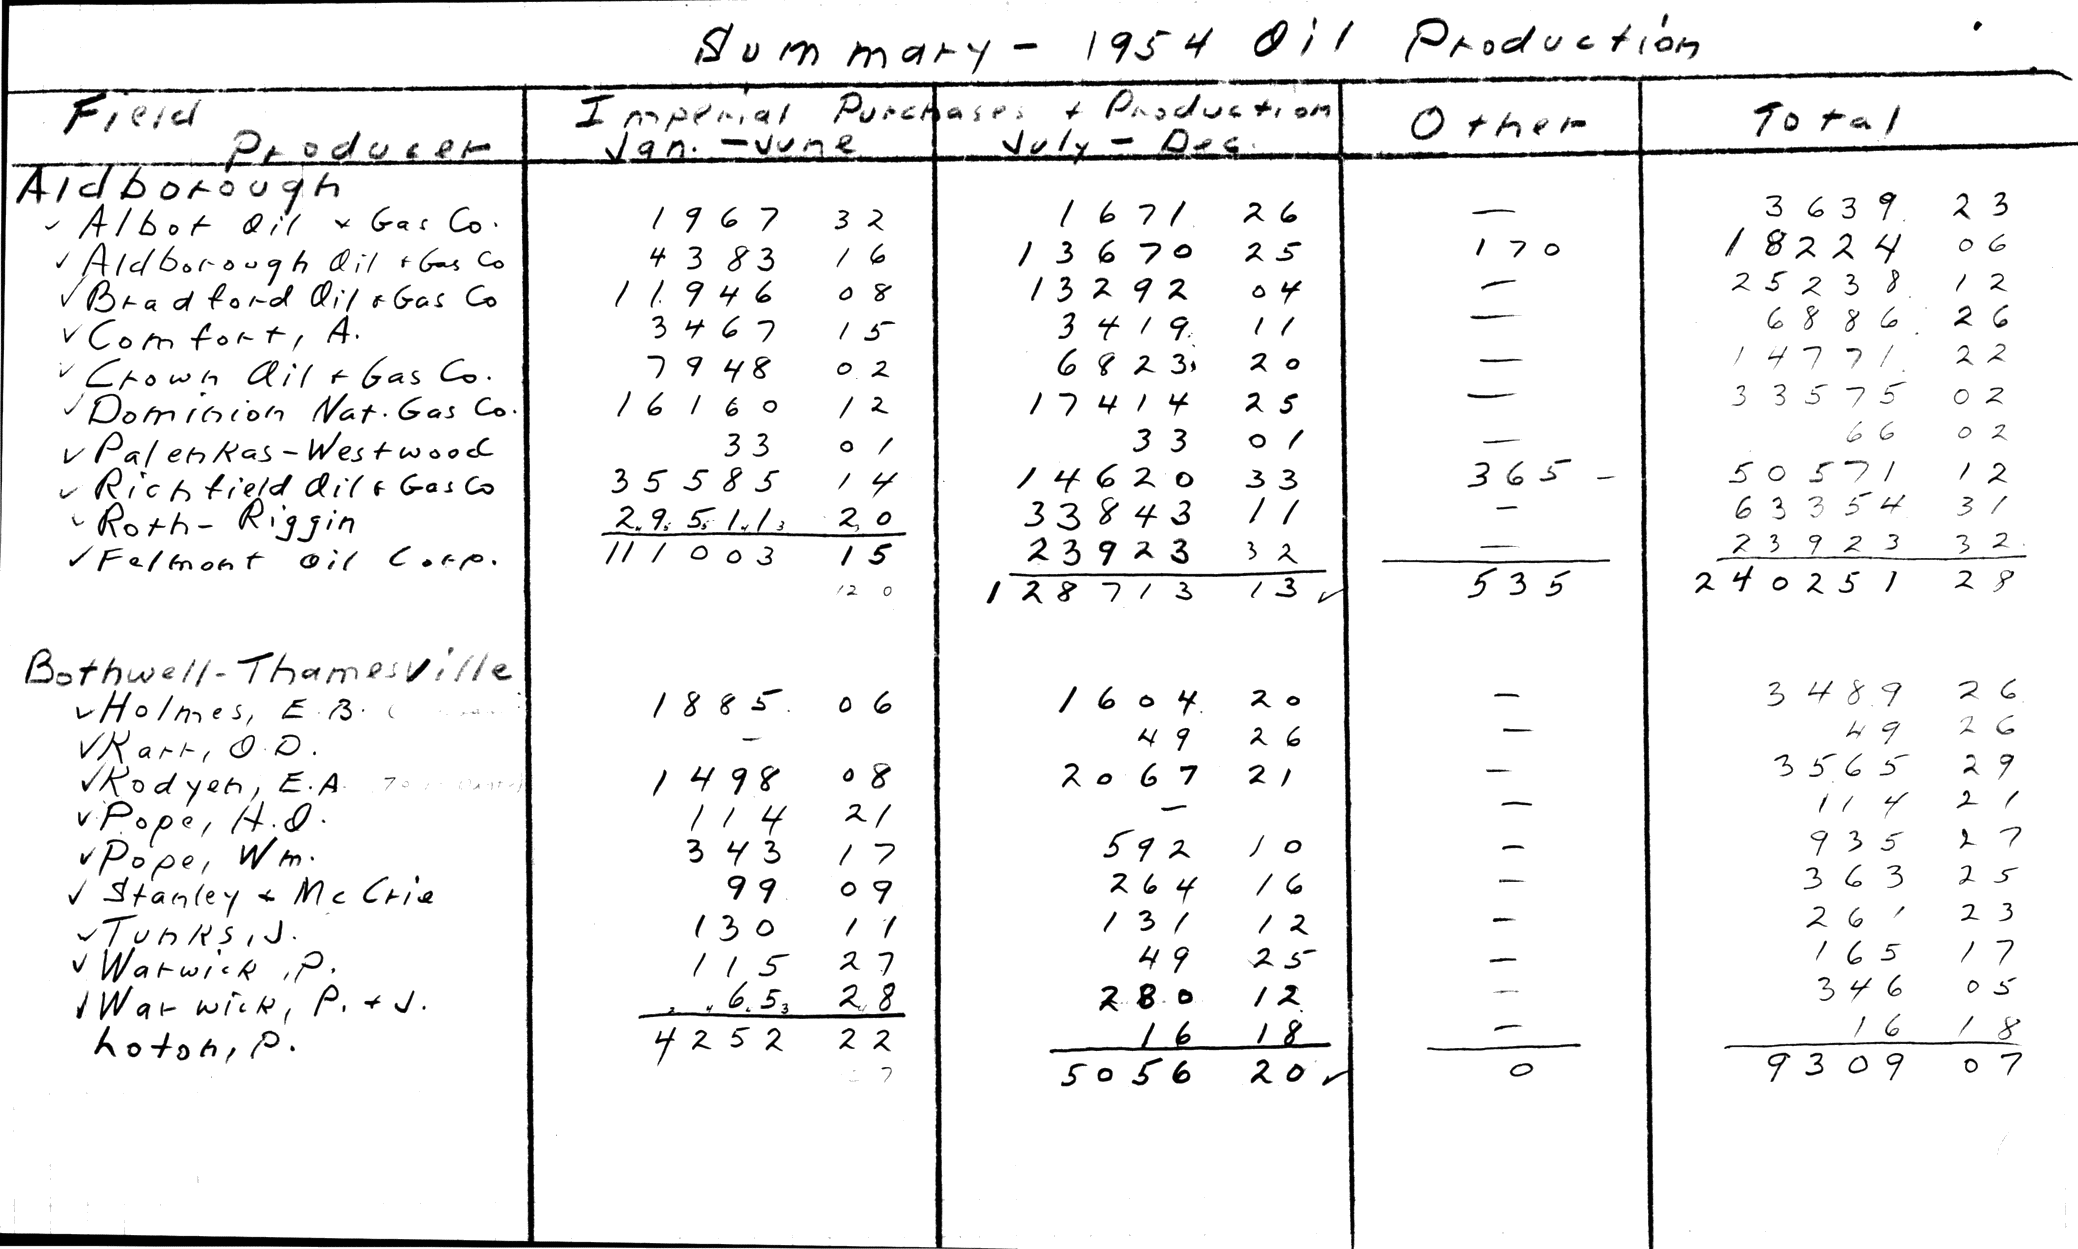 Summary - 1954 Oil Production
Field Producer Imperial Purchases + Production Other Total
Jan. - June July - Dec.
Aldborough
✓ Albot Oil + Gas Co. 1967 32 1671 26 — 3639 23
✓ Aldborough Oil + Gas Co 4383 16 13670 25 170 18224 06
✓ Bradford Oil + Gas Co 11946 08 13292 04 — 25238 12
✓ Comfort, A. 3467 15 3419 11 — 6886 26
✓ Crown Oil + Gas Co. 7948 02 6823 20 — 14771 22
✓ Dominion Nat. Gas Co. 16160 12 17414 25 — 33575 02
✓ Palenkas-Westwood 33 01 33 01 — 66 02
✓ Richfield Oil + Gas Co 35585 14 14620 33 365 - 50571 12
✓ Roth - Riggin 29511 20 33843 11 - 63354 31
✓ Felmont Oil Corp. 111003 15 23923 32 — 23923 32
120 128713 13 ✓ 535 240251 28
Bothwell-Thamesville
✓ Holmes, E.B. 1885 06 1604 20 - 3489 26
✓ Karr, O.D. - 49 26 - 49 26
✓ Kodyen, E.A. 1498 08 2067 21 - 3565 29
✓ Pope, H.O. 114 21 - - 114 21
✓ Pope, Wm. 343 17 592 10 - 935 27
✓ Stanley + McCrie 99 09 264 16 - 363 25
✓ Tunks, J. 130 11 131 12 - 261 23
✓ Warwick, P. 115 27 49 25 - 165 17
✓ Warwick, P. + J. 65 28 280 12 - 346 05
hoton, P. 4252 22 16 18 - 16 18
7 5056 20 ✓ 0 9309 07